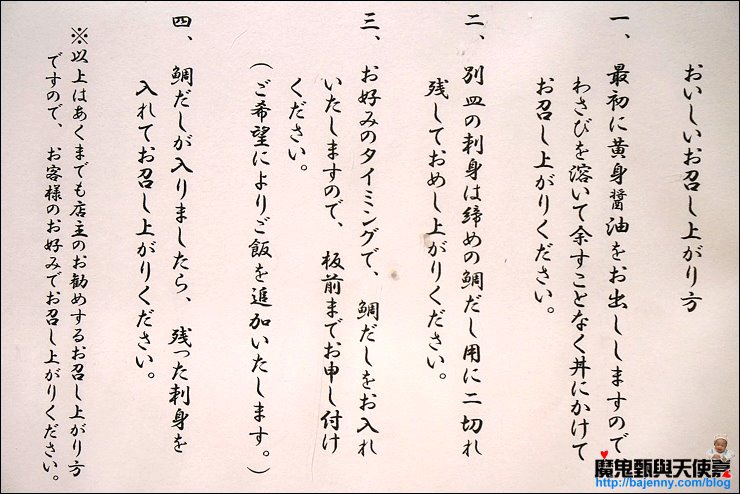 おいしいお召し上がり方
一、最初に黄身醤油をお出ししますので
わさびを溶いて余すことなく丼にかけて
お召し上がりください。
二、別皿の刺身は締めの鯛だし用に二切れ
残しておめし上がりください。
三、お好みのタイミングで、鯛だしをお入れ
いたしますので、板前までお申し付け
ください。
(ご希望によりご飯を追加いたします。)
四、鯛だしが入りましたら、残った刺身を
入れてお召し上がりください。
※以上はあくまでも店主のお勧めするお召し上がり方
ですので、お客様のお好みでお召し上がりください。
魔鬼甄與天使嘉
http://bajenny.com/blog